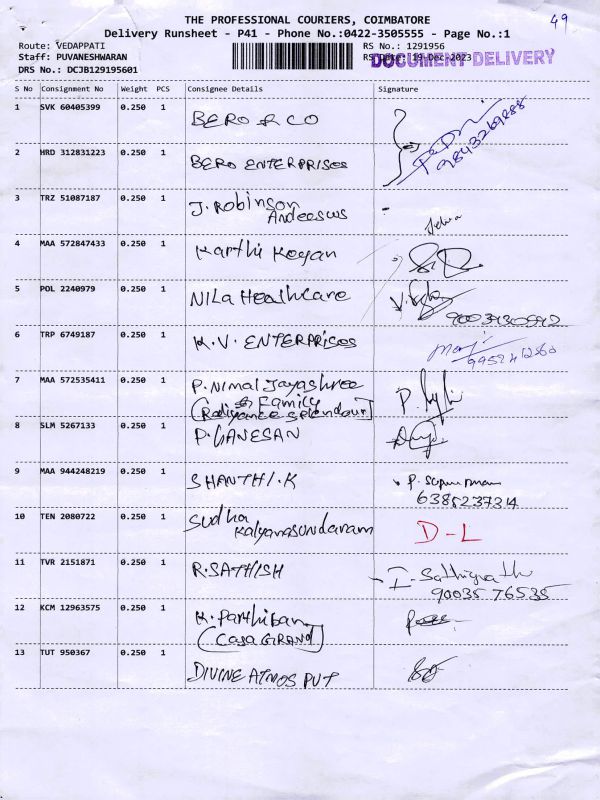 THE PROFESSIONAL COURIERS, COIMBATORE
49
Delivery Runsheet - P41 - Phone No.:0422-3505555 - Page No.:1
Route: VEDAPPATI
RS No.: 1291956
Staff: PUVANESHWARAN
RS Date: 19-Dec-2023
DOCUMENT DELIVERY
DRS No.: DCJB129195601
S No Consignment No Weight PCS Consignee Details Signature
1 SVK 60405399 0.250 1 BERO & CO
9843269888
2 HRD 312831223 0.250 1 BERO ENTERPRISES
3 TRZ 51087187 0.250 1 J. Robinson
4 MAA 572847433 0.250 1 Karthi Keyan
5 POL 2240979 0.250 1 NILA HEALTHCARE
6 TRP 6749187 0.250 1 K.V. ENTERPRISES
7 MAA 572535411 0.250 1 P. Nimal Jayashree
& Family
(Radiyance Splendour)
8 SLM 5267133 0.250 1 P. GANESAN
9 MAA 944248219 0.250 1 SHANTHI.K
6385237314
10 TEN 2080722 0.250 1 Sudha D-L
Kalyanasundaram
11 TVR 2151871 0.250 1 R. SATHISH
90035 76535
12 KCM 12963575 0.250 1 K. Parthiban
(CASA GRAND)
13 TUT 950367 0.250 1 DIVINE ATMOS PVT